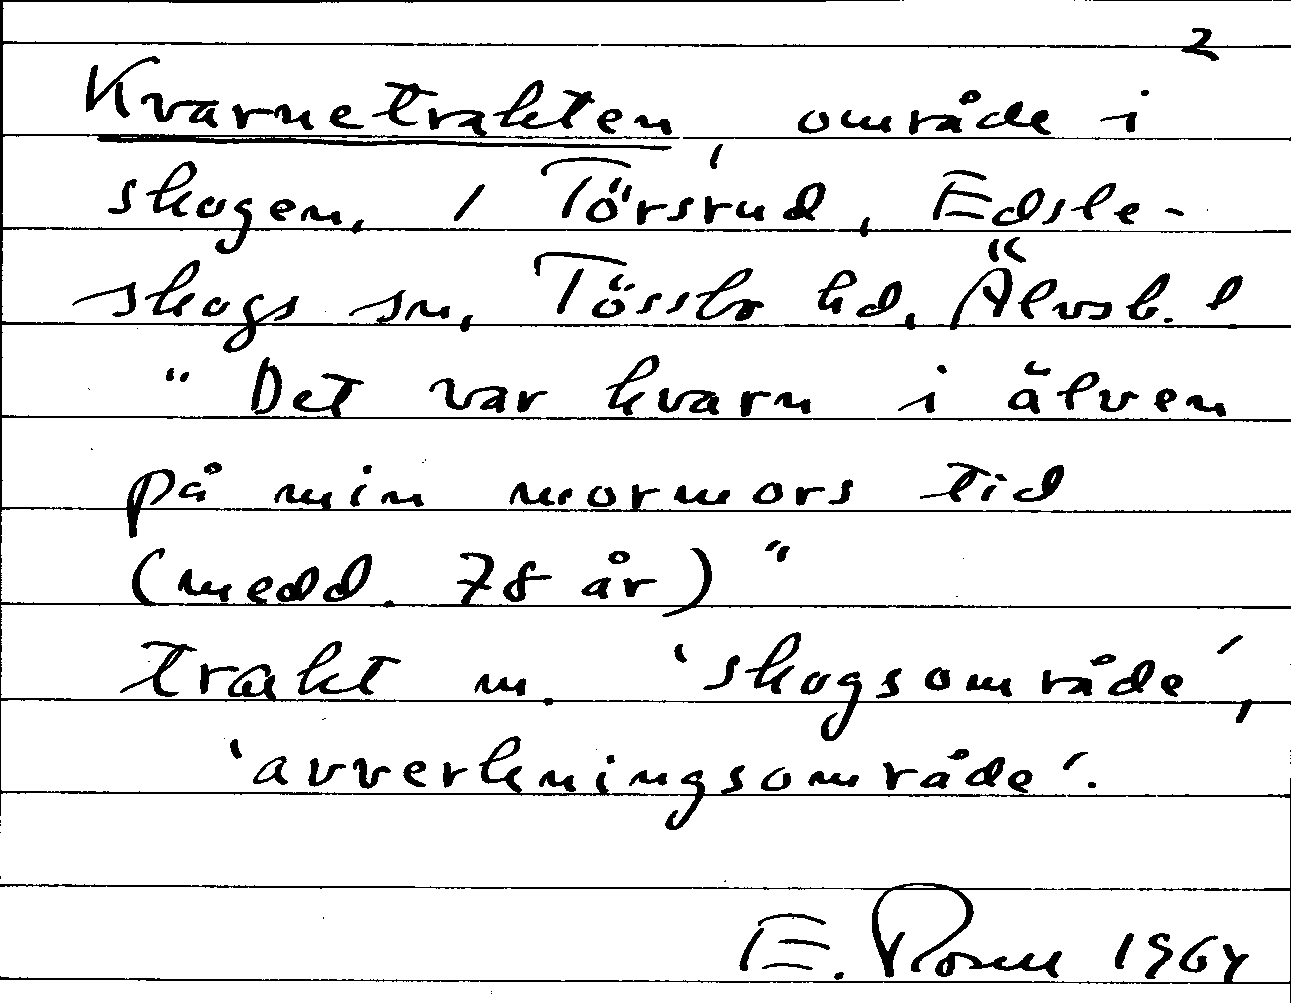 2
Kvarnetrakten, område i
skogen, / Törsrud, Edsle-
skogs sn, Tössbo hd, Älvsb. l
" Det var kvarn i älven
på min mormors tid
(medd. 78 år) "
trakt m. 'skogsområde',
'avverkningsområde'.
E. 1964